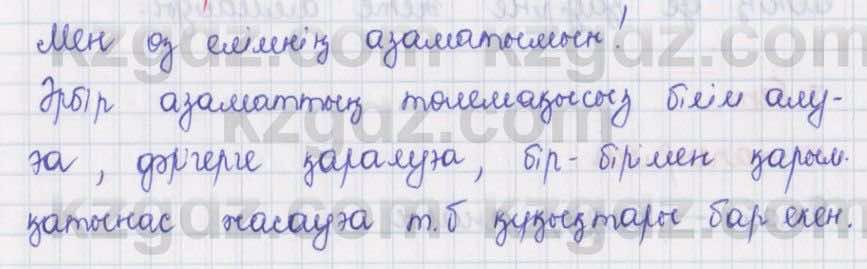 Мен өз елімнің азаматымын!
Әрбір азаматтың төлемақысыз білім алу-
ға, дәрігерге қаралуға, бір-бірімен қарым-
қатынас жасауға т.б құқықтары бар екен.
kzgdz.com kzgdz.com
kzgdz.com
kzgdz.com kzgdz.com